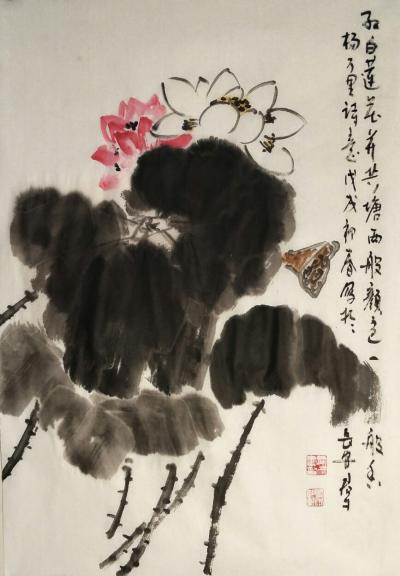 红白莲花开共塘两般颜色一般香
杨万里诗意戊戌初春写於
长安